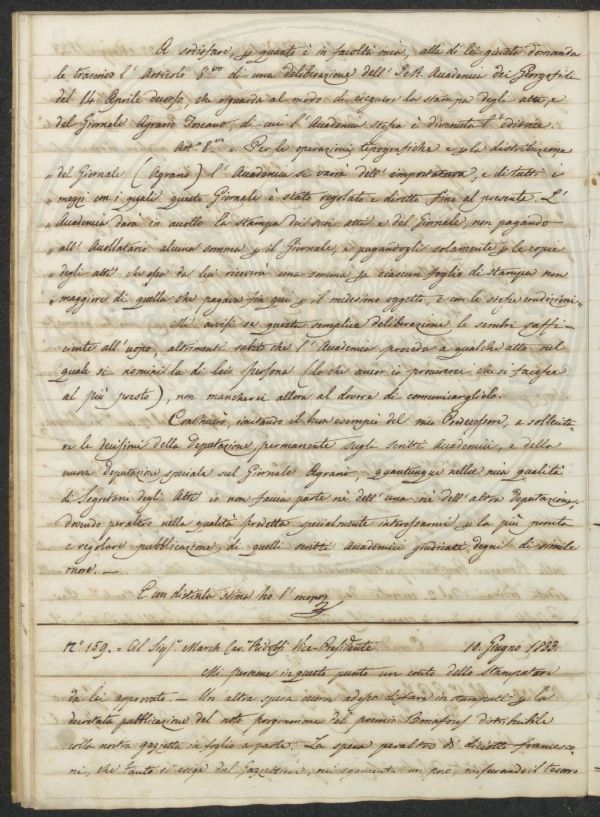 A sodisfare, p quanto è in facoltà mia, alla di lei giusta domanda
le trascrivo l'Articolo 8.vo di una deliberazione dell' I e R. Accademia dei Georgofili
del 14 Aprile decorso, che riguarda al modo di eseguire la stampa degli atti, e
del Giornale Agrario Toscano, di cui l'Accademia stessa è divenuta l'editrice.
Art.o 8.vo „ Per le operazioni tipografiche e p la distribuzione
„ del Giornale (Agrario) l'Accademia si varrà dell' e di tutti i
„ mezzi con i quali questo Giornale è stato regolato e diretto fino al presente. L'
„ Accademia darà in accollo la stampa dei suoi atti e del Giornale, non pagando
„ all' Accollatario alcuna somma p il Giornale, e pagandogli solamente p le copie
„ degli atti che essa da lui riceverà una somma p ciascun foglio di stampa non
„ maggiore di quella che pagava fin qui p il medesimo oggetto, e con le stesse condizioni „
Mi avvisi se questa semplice deliberazione le sembri suffi-
ciente all'uopo, altrimenti subito che l'Accademia proceda a qualche atto nel
quale si nomini la di lei persona (lo che che si facesse
al più presto), non mancherei allora al dovere di comunicarglielo.
Continuerò, imitando il buon esempio del mio Predecessore, a sollecita-
re le decisioni della Deputazione permanente sugli scritti Accademici, e della
nuova deputazione speciale sul Giornale Agrario, quantunque nella mia qualità
di Segretario degli Atti io non faccia parte nè dell' una nè dell' altra Deputazione,
dovendo peraltro nella qualità predetta specialmente interessarmi p la più pronta
e regolare pubblicazione, di quelli scritti Accademici giudicati degni di simile
onore. —
E con distinta stima ho l'onore
N.o 159. = Al Sig.r March. Cav. Ridolfi Vice-Presidente 10. Giugno 1833
Mi perviene in questo punto un conto dello Stampatore
da lei approvato. — Un altra spesa occorre adesso di fare in p la
decretata pubblicazione del noto programma del premio Bonafous distribuibile
colla nostra gazzetta in foglio a parte. La spesa peraltro di diciotto francesco-
ni, che tanto si esige dal Gazzettiere, mi sgomenta un poco, misurando il tesoro